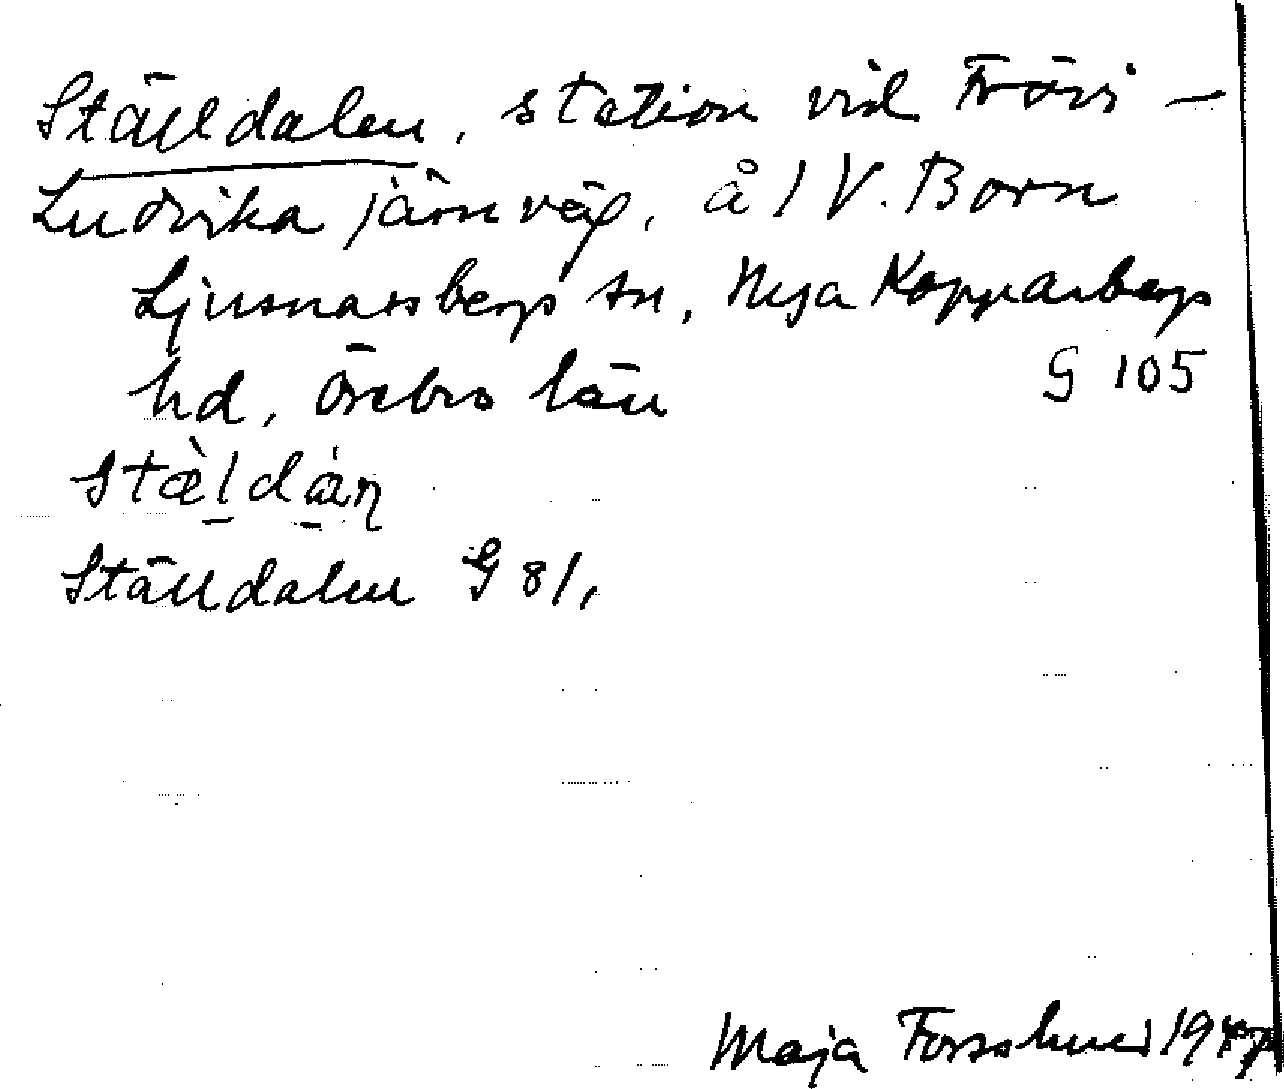 Ställdalen, station vid Frövi –
Ludvika järnväg, å 1 V. Born
Ljusnarsbergs sn, Nya Kopparbergs
hd, Örebro län
G 105
stæ̀ldán
Ställdalen G 81,
Maja Forsslund 1947